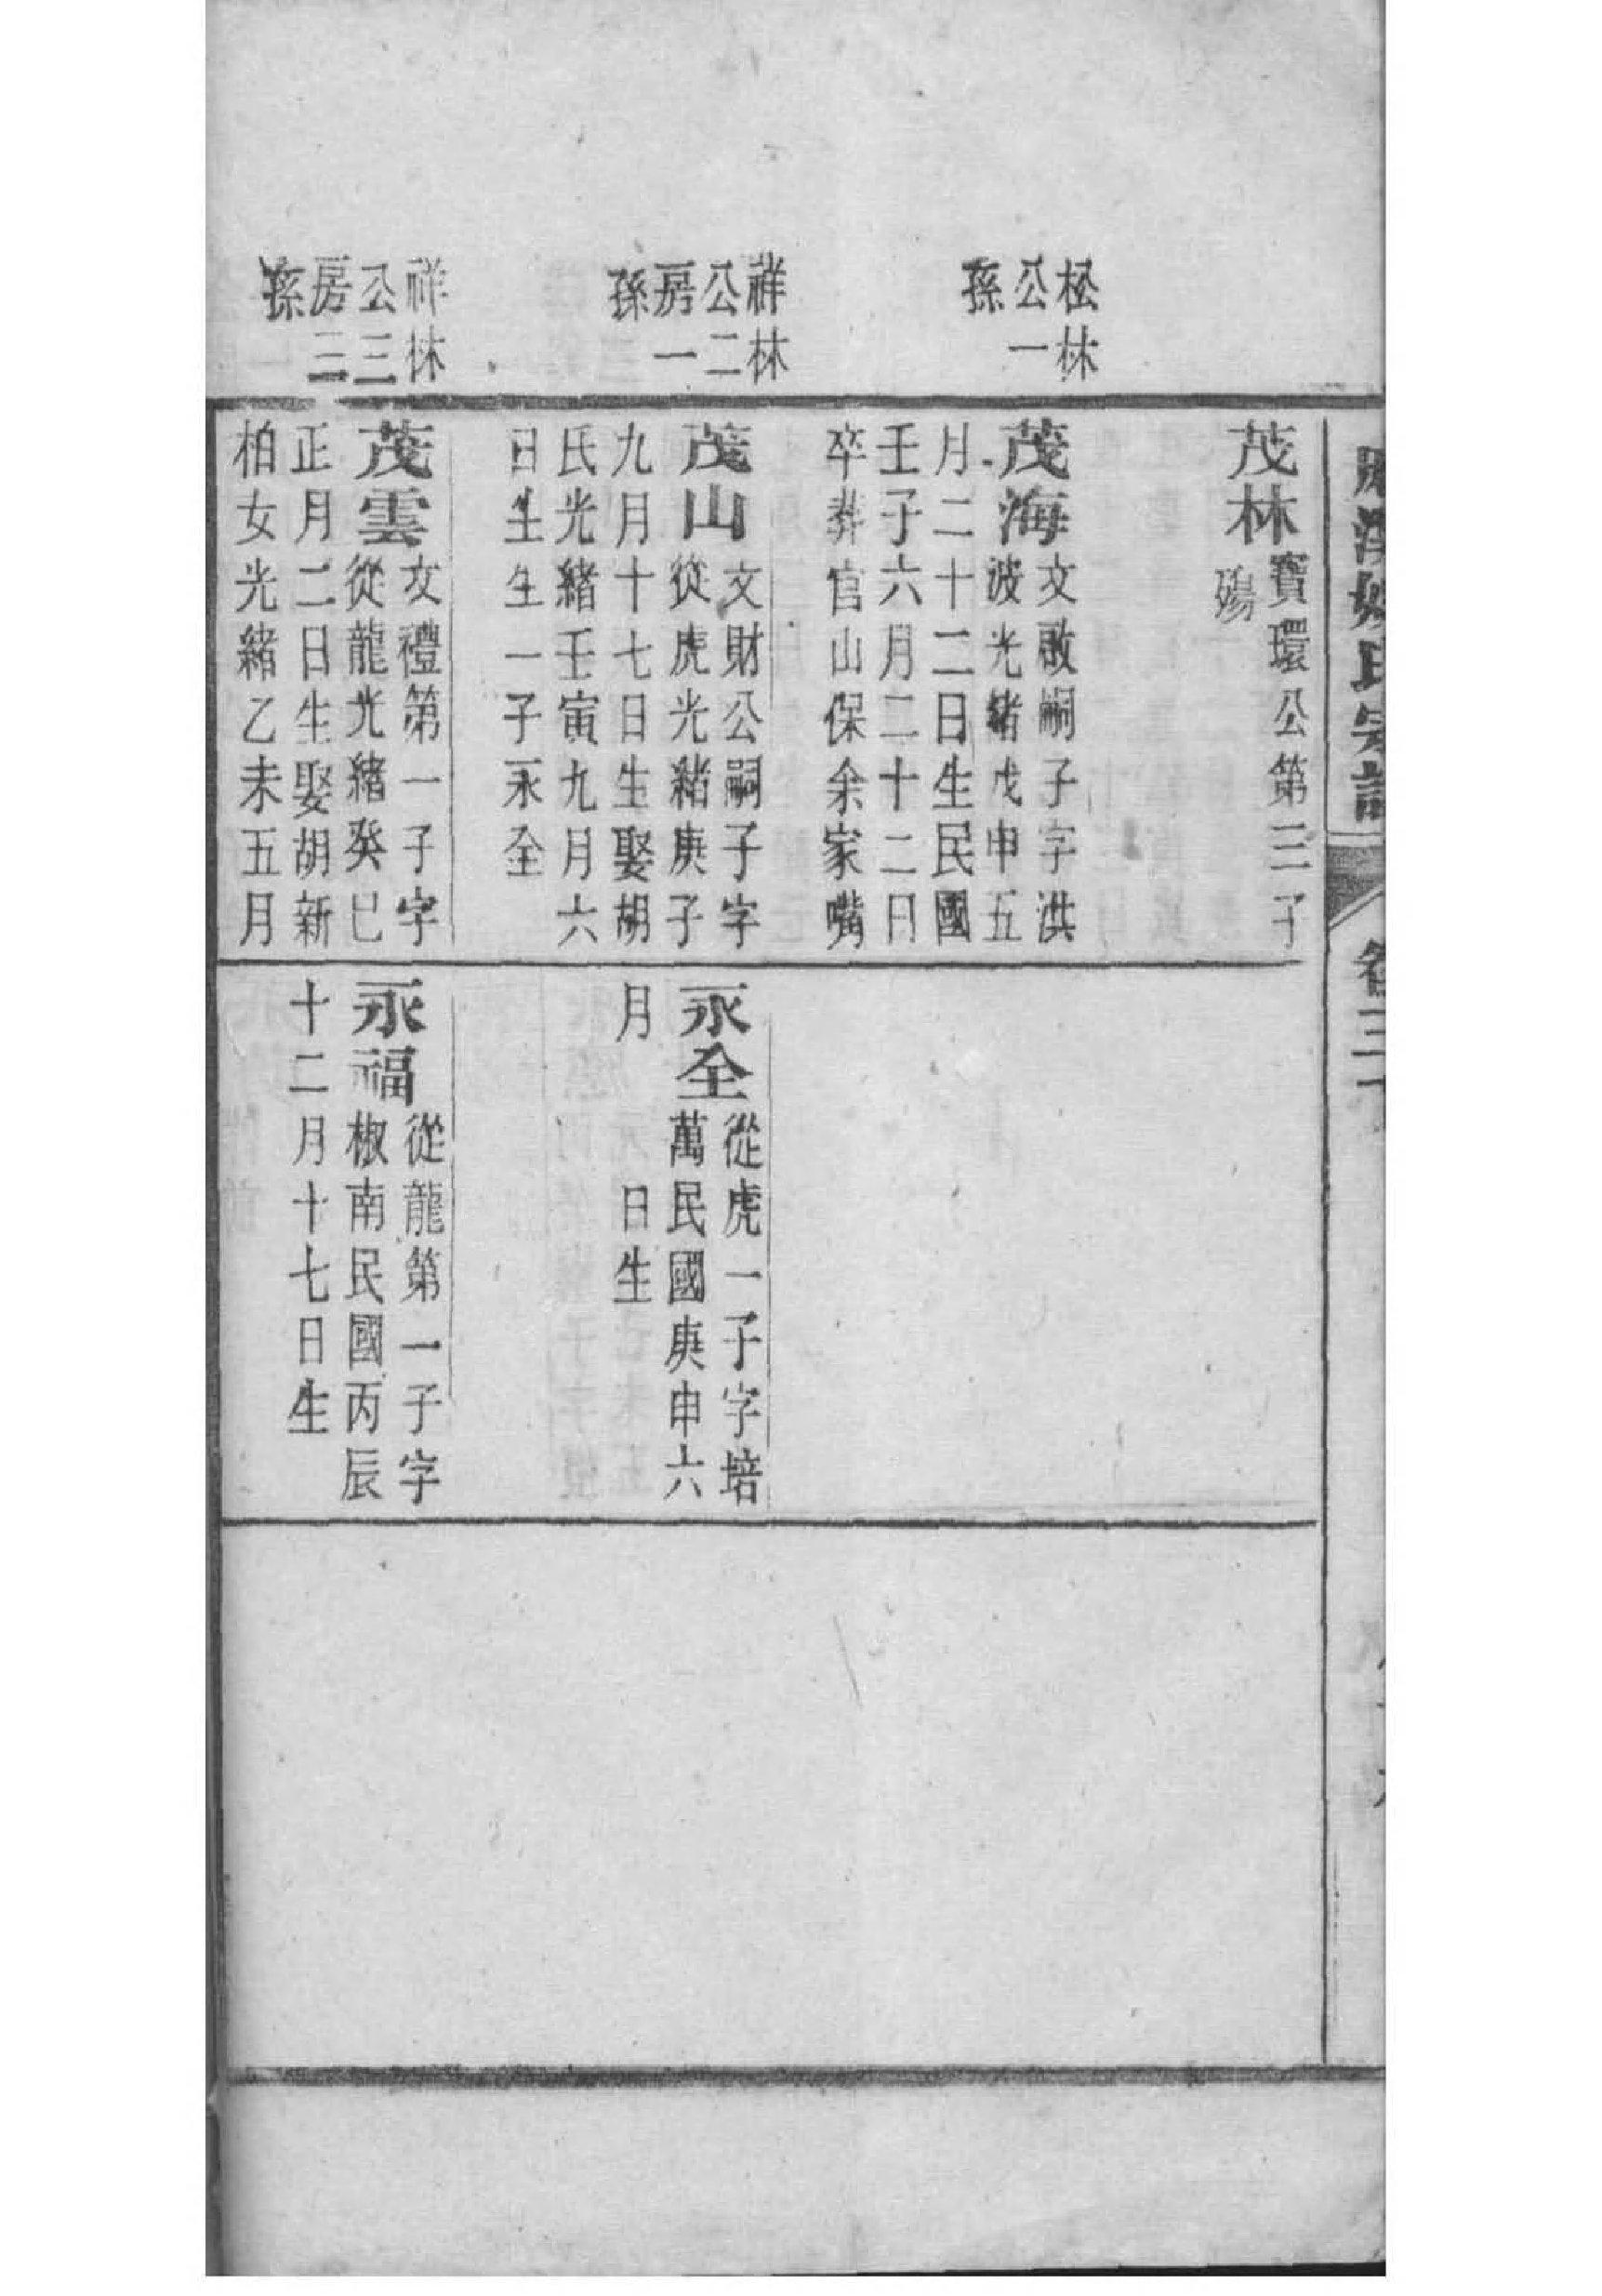 氏宗譜
卷三
松林
公一
孫
祥林
公二
房一
孫
祥林
公三
房二
孫
茂林
寶環公第三子
殤
茂海
文啟嗣子字洪
波光緒戊申五
月二十二日生民國
壬子六月二十二日
卒葬官山保余家嘴
茂山
文財公嗣子字
從虎光緒庚子
九月十七日生娶胡
氏光緒壬寅九月六
日生生一子永全
茂雲
文禮第一子字
從龍光緒癸巳
正月二日生娶胡新
柏女光緒乙未五月
永全
從虎一子字培
萬民國庚申六
月 日生
永福
從龍第一子字
椒南民國丙辰
十二月十七日生